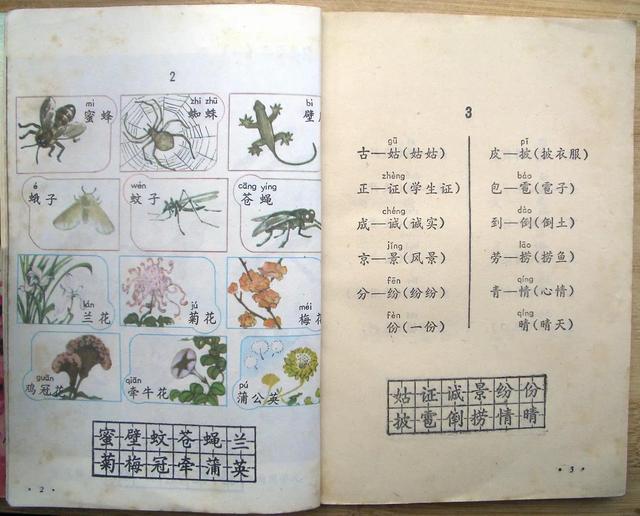 2
mì
蜜蜂
zhī zhū
蜘蛛
bì
壁
é
蛾子
wén
蚊子
cāng yíng
苍蝇
lán
兰花
jú
菊花
méi
梅花
guān
鸡冠花
qiān
牵牛花
pú
蒲公英
蜜壁蚊苍蝇兰
菊梅冠牵蒲英
· 2 ·
3
gū
古—姑(姑姑)
zhèng
正—证(学生证)
chéng
成—诚(诚实)
jǐng
京—景(风景)
fēn
分—纷(纷纷)
fèn
份(一份)
pī
皮—披(披衣服)
báo
包—雹(雹子)
dào
到—倒(倒土)
lāo
劳—捞(捞鱼)
qíng
青—情(心情)
qíng
晴(晴天)
姑证诚景纷份
披雹倒捞情晴
· 3 ·